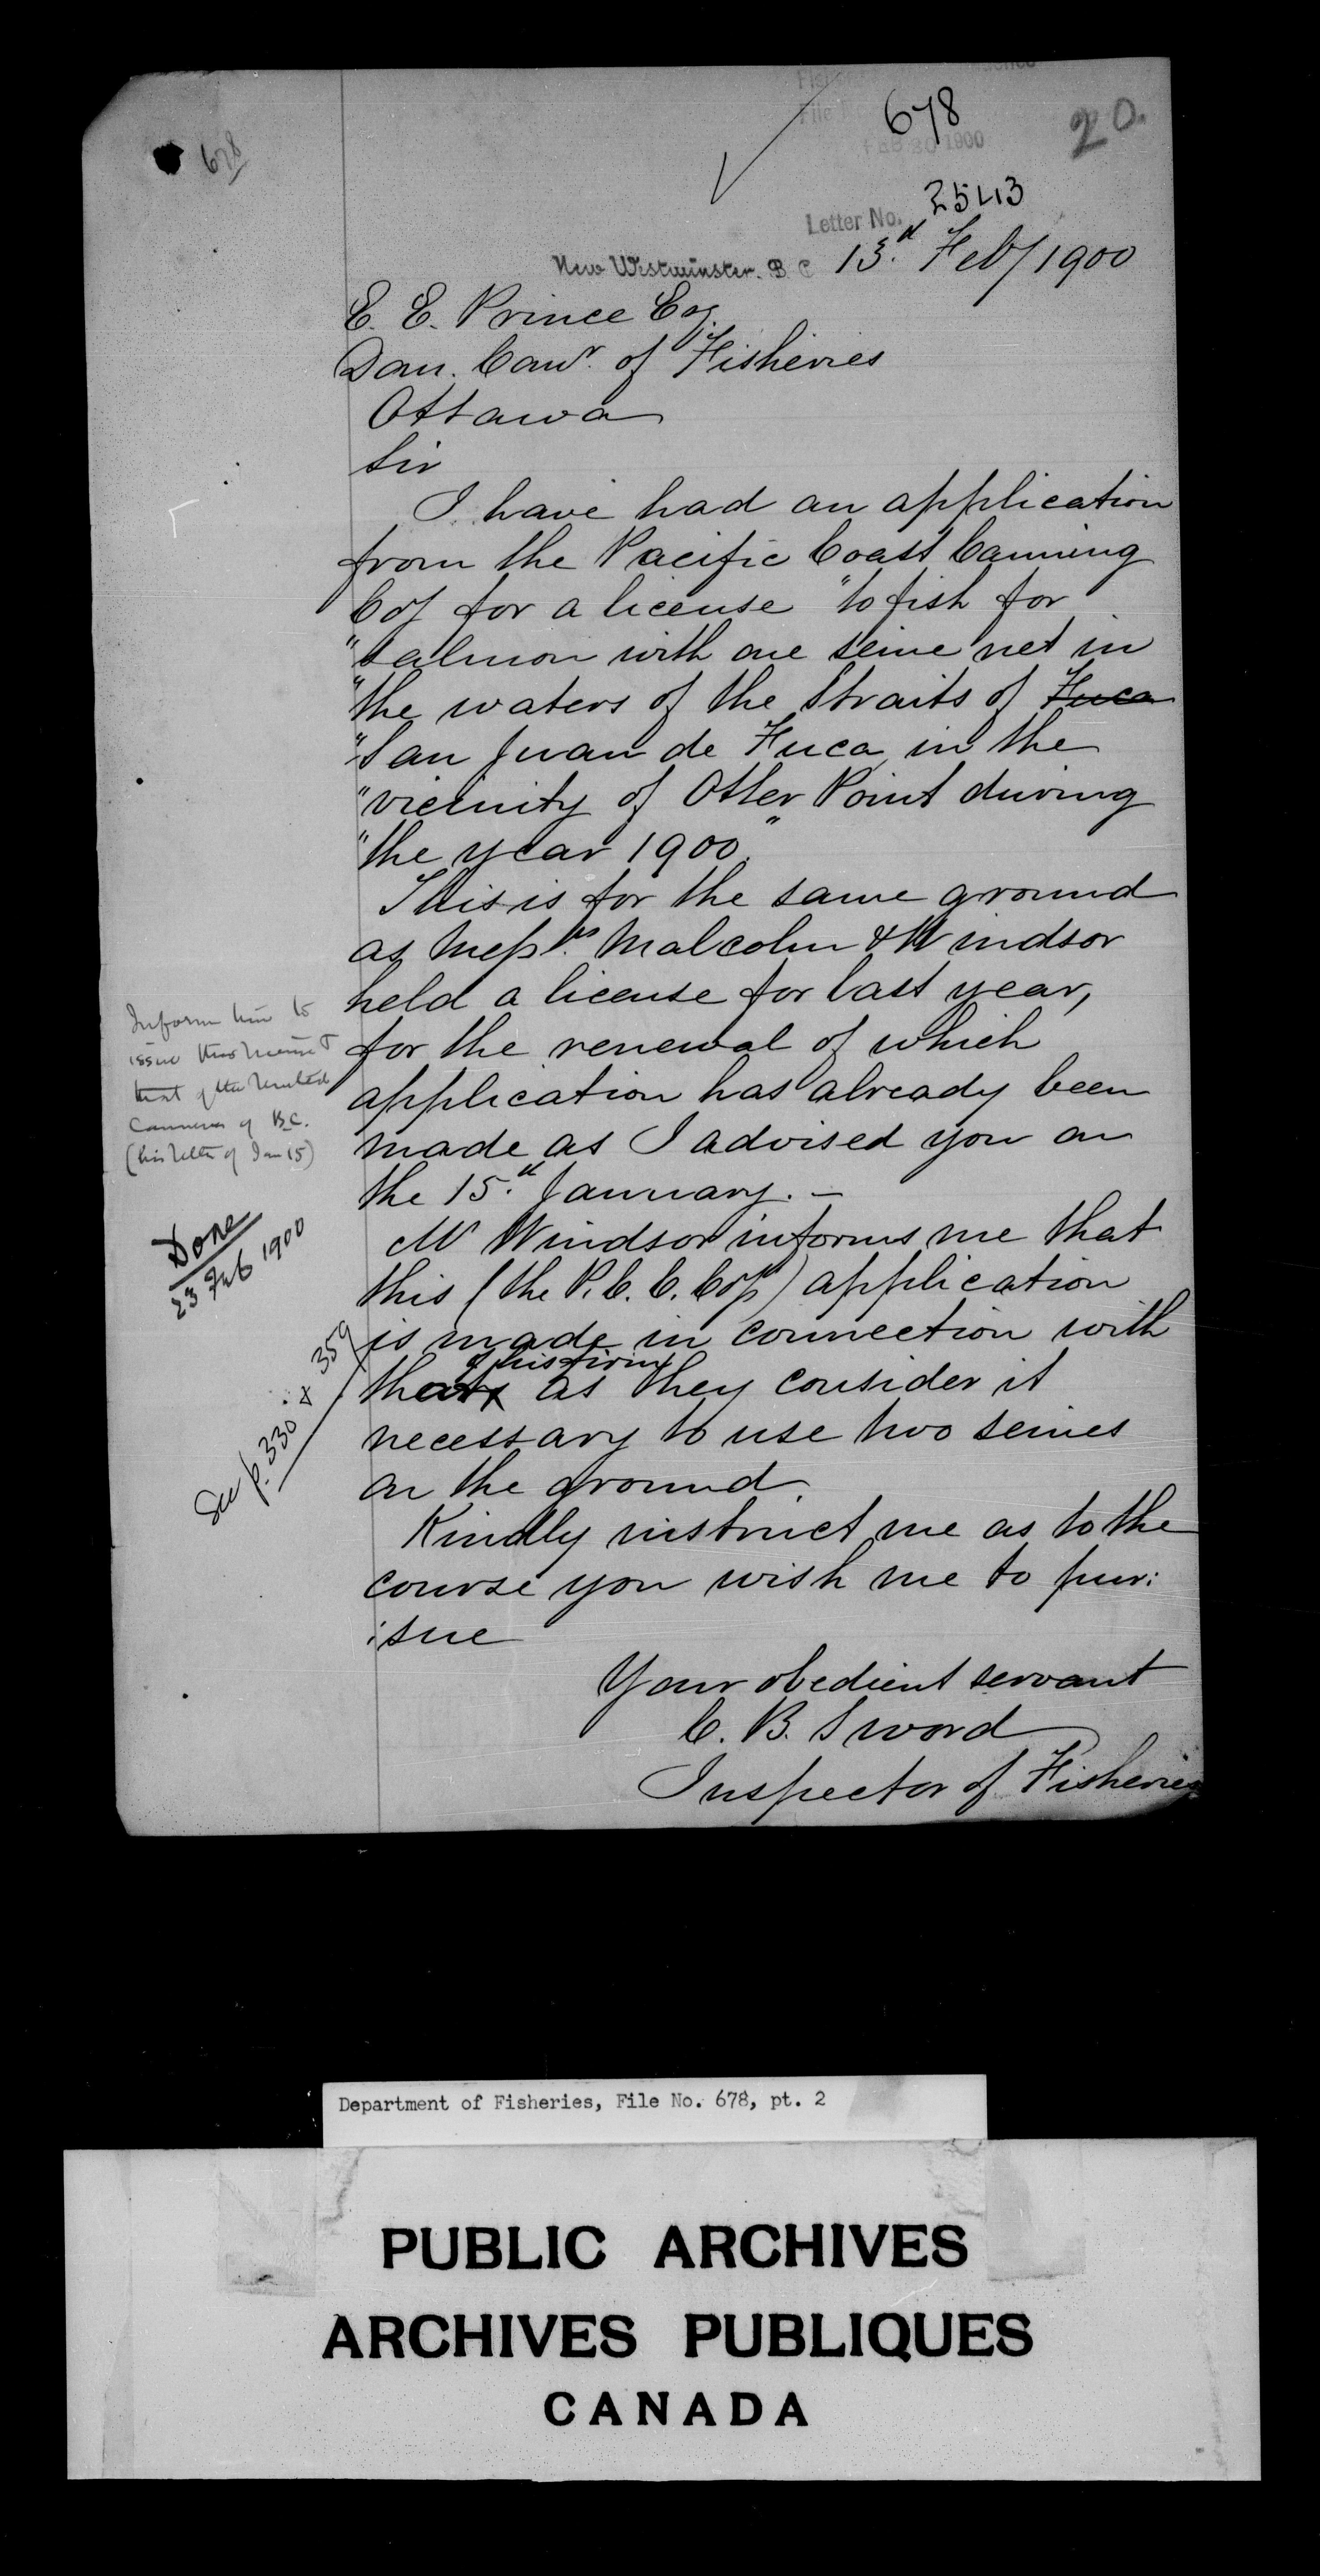 678
20.
678
FEB 20 1900
Letter No. 25413
New Westminster. B. C. 13.th Feb/1900
E. E. Prince Esq.
Dom. Comr. of Fisheries
Ottawa
Sir
I have had an application
from the Pacific Coast Canning
Coy for a license "to fish for
"salmon with one seine net in
"the waters of the Straits of Fuca
"San Juan de Fuca in the
"vicinity of Otter Point during
"the year 1900."
This is for the same ground
as Messrs. Malcolm & Windsor
held a license for last year,
for the renewal of which
application has already been
made as I advised you on
the 15.th January. —
Mr Windsor informs me that
this (the P. C. C. Coy's) application
is made in connection with
that of his firm as they consider it
necessary to use two seines
on the ground.
Kindly instruct me as to the
course you wish me to pur:
:sue
Your obedient servant
C. B. Sword
Inspector of Fisheries
Inform him to
issue this license &
that of the United
Canneries of B.C.
(his letter of Jan 15)
Done
23 Feb 1900
See p. 330 & 359
Department of Fisheries, File No. 678, pt. 2
PUBLIC ARCHIVES
ARCHIVES PUBLIQUES
CANADA